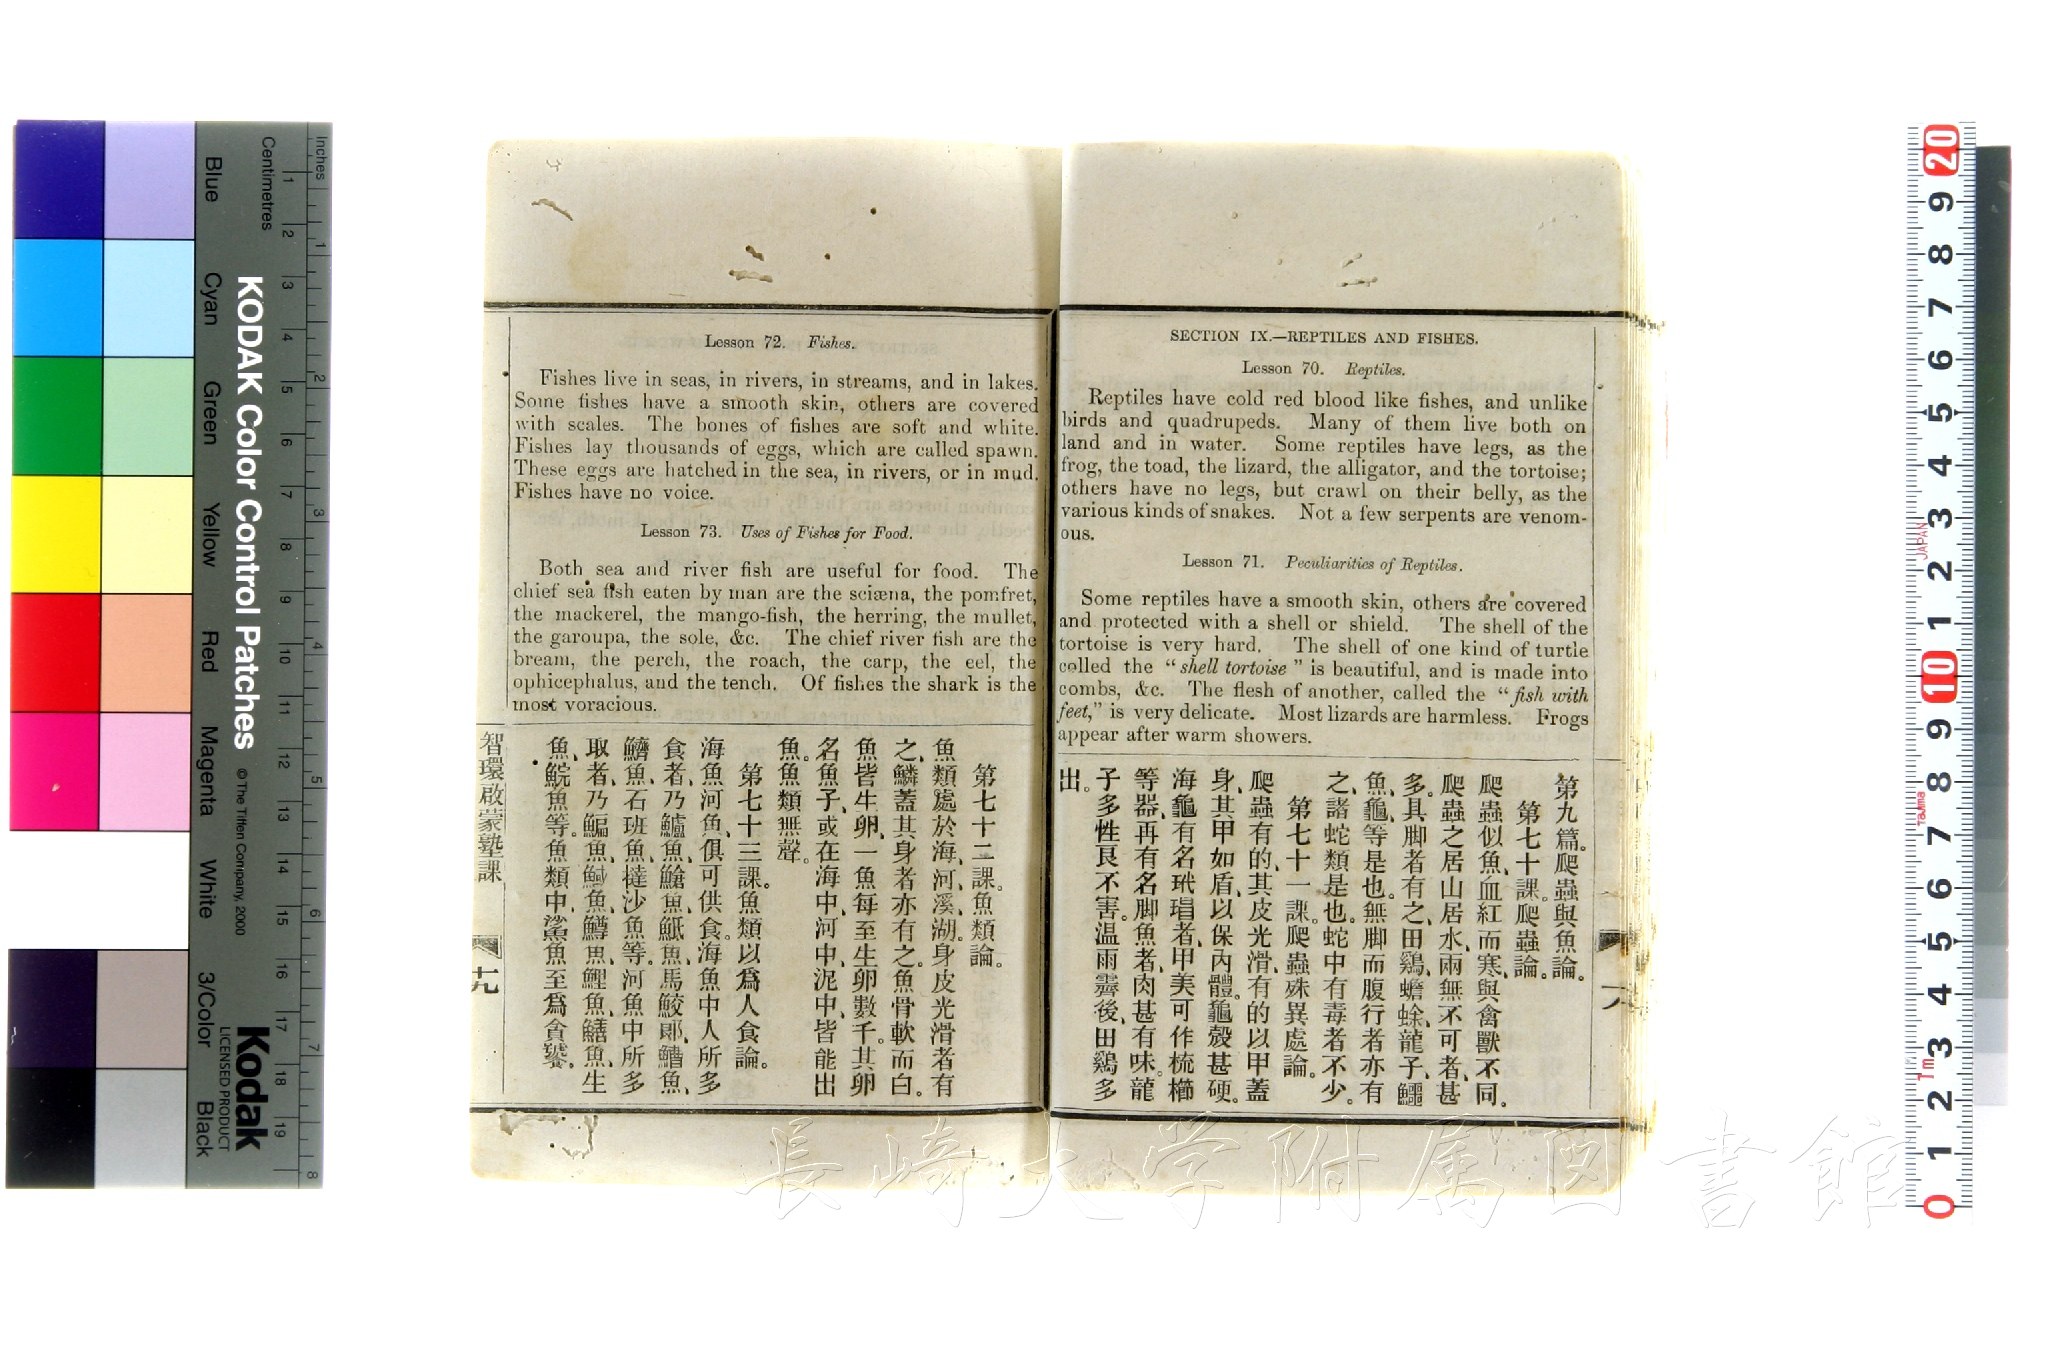 SECTION IX.—REPTILES AND FISHES.
Lesson 70. Reptiles.
Reptiles have cold red blood like fishes, and unlike
birds and quadrupeds. Many of them live both on
land and in water. Some reptiles have legs, as the
frog, the toad, the lizard, the alligator, and the tortoise;
others have no legs, but crawl on their belly, as the
various kinds of snakes. Not a few serpents are venom-
ous.
Lesson 71. Peculiarities of Reptiles.
Some reptiles have a smooth skin, others are covered
and protected with a shell or shield. The shell of the
tortoise is very hard. The shell of one kind of turtle
called the “shell tortoise” is beautiful, and is made into
combs, &c. The flesh of another, called the “fish with
feet,” is very delicate. Most lizards are harmless. Frogs
appear after warm showers.
第九篇。爬蟲與魚論。
第七十課。爬蟲論。
爬蟲似魚、血紅而寒、與禽獸不同。
爬蟲之居山居水、兩無不可者、甚
多。具脚者有之、田鷄、蟾蜍、龍子、鱷
魚、龜、等是也。無脚而腹行者亦有
之、諸蛇類是也。蛇中有毒者不少。
第七十一課。爬蟲殊異處論。
爬蟲有的、其皮光滑、有的以甲蓋
身、其甲如盾、以保內體。龜殼甚硬。
海龜有名玳瑁者、甲美可作梳櫛
等器、再有名脚魚者、肉甚有味。龍
子多性良不害。温雨霽後、田鷄多
出。
Lesson 72. Fishes.
Fishes live in seas, in rivers, in streams, and in lakes.
Some fishes have a smooth skin, others are covered
with scales. The bones of fishes are soft and white.
Fishes lay thousands of eggs, which are called spawn.
These eggs are hatched in the sea, in rivers, or in mud.
Fishes have no voice.
Lesson 73. Uses of Fishes for Food.
Both sea and river fish are useful for food. The
chief sea fish eaten by man are the sciæna, the pomfret,
the mackerel, the mango-fish, the herring, the mullet,
the garoupa, the sole, &c. The chief river fish are the
bream, the perch, the roach, the carp, the eel, the
ophicephalus, and the tench. Of fishes the shark is the
most voracious.
第七十二課。魚類論。
魚類處於海、河、溪、湖。身皮光滑者有
之、鱗蓋其身者亦有之。魚骨軟而白。
魚皆生卵、一魚每至生卵數千。其卵
名魚子、或在海中、河中、泥中、皆能出
魚。魚類無聲。
第七十三課。魚類以爲人食論。
海魚河魚、俱可供食。海魚中人所多
食者、乃鱸魚、鯧魚、魚、馬鮫郎、鰽魚、
鱭魚、石班魚、撻沙魚等。河魚中所多
取者、乃鯿魚、魚、鱒魚、鯉魚、鱔魚、生
魚、鯇魚等。魚類中、鯊魚至爲貪饕。
智環啟蒙塾課
十九
KODAK Color Control Patches
© The Tiffen Company, 2000
Kodak
LICENSED PRODUCT
Inches
Centimetres
Blue
Cyan
Green
Yellow
Red
Magenta
White
3/Color
Black
1 2 3 4 5 6 7 8 9 10 11 12 13 14 15 16 17 18 19
1 2 3 4 5 6 7 8
20 9 8 7 6 5 4 3 2 1 10 9 8 7 6 5 4 3 2 1 0
JAPAN
TAJIMA
1m
長崎大学附属図書館